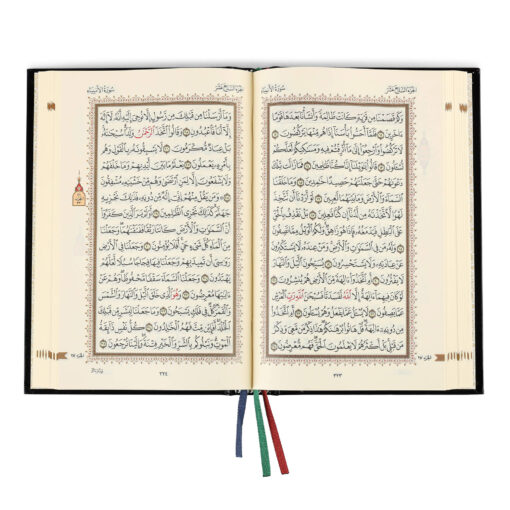 الجزء السابع عشر
سورة الأنبياء
وَكَمْ قَصَمْنَا مِن قَرْيَةٍ كَانَتْ ظَالِمَةً وَأَنشَأْنَا بَعْدَهَا قَوْمًا
ءَاخَرِينَ ١١ فَلَمَّآ أَحَسُّوا۟ بَأْسَنَآ إِذَا هُم مِّنْهَا يَرْكُضُونَ ١٢
لَا تَرْكُضُوا۟ وَٱرْجِعُوٓا۟ إِلَىٰ مَآ أُتْرِفْتُمْ فِيهِ وَمَسَـٰكِنِكُمْ لَعَلَّكُمْ
تُسْـَٔلُونَ ١٣ قَالُوا۟ يَـٰوَيْلَنَآ إِنَّا كُنَّا ظَـٰلِمِينَ ١٤ فَمَا زَالَت تِّلْكَ
دَعْوَىٰهُمْ حَتَّىٰ جَعَلْنَـٰهُمْ حَصِيدًا خَـٰمِدِينَ ١٥ وَمَا خَلَقْنَا
ٱلسَّمَآءَ وَٱلْأَرْضَ وَمَا بَيْنَهُمَا لَـٰعِبِينَ ١٦ لَوْ أَرَدْنَآ أَن نَّتَّخِذَ
لَهْوًا لَّٱتَّخَذْنَـٰهُ مِن لَّدُنَّآ إِن كُنَّا فَـٰعِلِينَ ١٧ بَلْ نَقْذِفُ بِٱلْحَقِّ
عَلَى ٱلْبَـٰطِلِ فَيَدْمَغُهُۥ فَإِذَا هُوَ زَاهِقٌ وَلَكُمُ ٱلْوَيْلُ مِمَّا تَصِفُونَ ١٨
وَلَهُۥ مَن فِى ٱلسَّمَـٰوَٰتِ وَٱلْأَرْضِ وَمَنْ عِندَهُۥ لَا يَسْتَكْبِرُونَ
عَنْ عِبَادَتِهِۦ وَلَا يَسْتَحْسِرُونَ ١٩ يُسَبِّحُونَ ٱلَّيْلَ وَٱلنَّهَارَ
لَا يَفْتُرُونَ ٢٠ أَمِ ٱتَّخَذُوٓا۟ ءَالِهَةً مِّنَ ٱلْأَرْضِ هُمْ يُنشِرُونَ ٢١
لَوْ كَانَ فِيهِمَآ ءَالِهَةٌ إِلَّا ٱللَّهُ لَفَسَدَتَا فَسُبْحَـٰنَ ٱللَّهِ رَبِّ ٱلْعَرْشِ
عَمَّا يَصِفُونَ ٢٢ لَا يُسْـَٔلُ عَمَّا يَفْعَلُ وَهُمْ يُسْـَٔلُونَ ٢٣ أَمِ ٱتَّخَذُوا۟
مِن دُونِهِۦٓ ءَالِهَةً قُلْ هَاتُوا۟ بُرْهَـٰنَكُمْ هَـٰذَا ذِكْرُ مَن مَّعِىَ وَذِكْرُ
مَن قَبْلِى بَلْ أَكْثَرُهُمْ لَا يَعْلَمُونَ ٱلْحَقَّ فَهُم مُّعْرِضُونَ ٢٤
الجزء ١٧
٣٢٣
الجزء السابع عشر
سورة الأنبياء
وَمَآ أَرْسَلْنَا مِن قَبْلِكَ مِن رَّسُولٍ إِلَّا نُوحِىٓ إِلَيْهِ أَنَّهُۥ لَآ إِلَـٰهَ
إِلَّآ أَنَا۠ فَٱعْبُدُونِ ٢٥ وَقَالُوا۟ ٱتَّخَذَ ٱلرَّحْمَـٰنُ وَلَدًا سُبْحَـٰنَهُۥ
بَلْ عِبَادٌ مُّكْرَمُونَ ٢٦ لَا يَسْبِقُونَهُۥ بِٱلْقَوْلِ وَهُم
بِأَمْرِهِۦ يَعْمَلُونَ ٢٧ يَعْلَمُ مَا بَيْنَ أَيْدِيهِمْ وَمَا خَلْفَهُمْ
وَلَا يَشْفَعُونَ إِلَّا لِمَنِ ٱرْتَضَىٰ وَهُم مِّنْ خَشْيَتِهِۦ مُشْفِقُونَ
٢٨ وَمَن يَقُلْ مِنْهُمْ إِنِّىٓ إِلَـٰهٌ مِّن دُونِهِۦ فَذَٰلِكَ نَجْزِيهِ
جَهَنَّمَ كَذَٰلِكَ نَجْزِى ٱلظَّـٰلِمِينَ ٢٩ أَوَلَمْ يَرَ ٱلَّذِينَ كَفَرُوٓا۟
أَنَّ ٱلسَّمَـٰوَٰتِ وَٱلْأَرْضَ كَانَتَا رَتْقًا فَفَتَقْنَـٰهُمَا وَجَعَلْنَا
مِنَ ٱلْمَآءِ كُلَّ شَىْءٍ حَىٍّ أَفَلَا يُؤْمِنُونَ ٣٠ وَجَعَلْنَا فِى ٱلْأَرْضِ
رَوَٰسِىَ أَن تَمِيدَ بِهِمْ وَجَعَلْنَا فِيهَا فِجَاجًا سُبُلًا لَّعَلَّهُمْ
يَهْتَدُونَ ٣١ وَجَعَلْنَا ٱلسَّمَآءَ سَقْفًا مَّحْفُوظًا وَهُمْ عَنْ
ءَايَـٰتِهَا مُعْرِضُونَ ٣٢ وَهُوَ ٱلَّذِى خَلَقَ ٱلَّيْلَ وَٱلنَّهَارَ وَٱلشَّمْسَ
وَٱلْقَمَرَ كُلٌّ فِى فَلَكٍ يَسْبَحُونَ ٣٣ وَمَا جَعَلْنَا لِبَشَرٍ مِّن قَبْلِكَ
ٱلْخُلْدَ أَفَإِي۟ن مِّتَّ فَهُمُ ٱلْخَـٰلِدُونَ ٣٤ كُلُّ نَفْسٍ ذَآئِقَةُ
ٱلْمَوْتِ وَنَبْلُوكُم بِٱلشَّرِّ وَٱلْخَيْرِ فِتْنَةً وَإِلَيْنَا تُرْجَعُونَ ٣٥
الجزء ١٧
٣٢٤